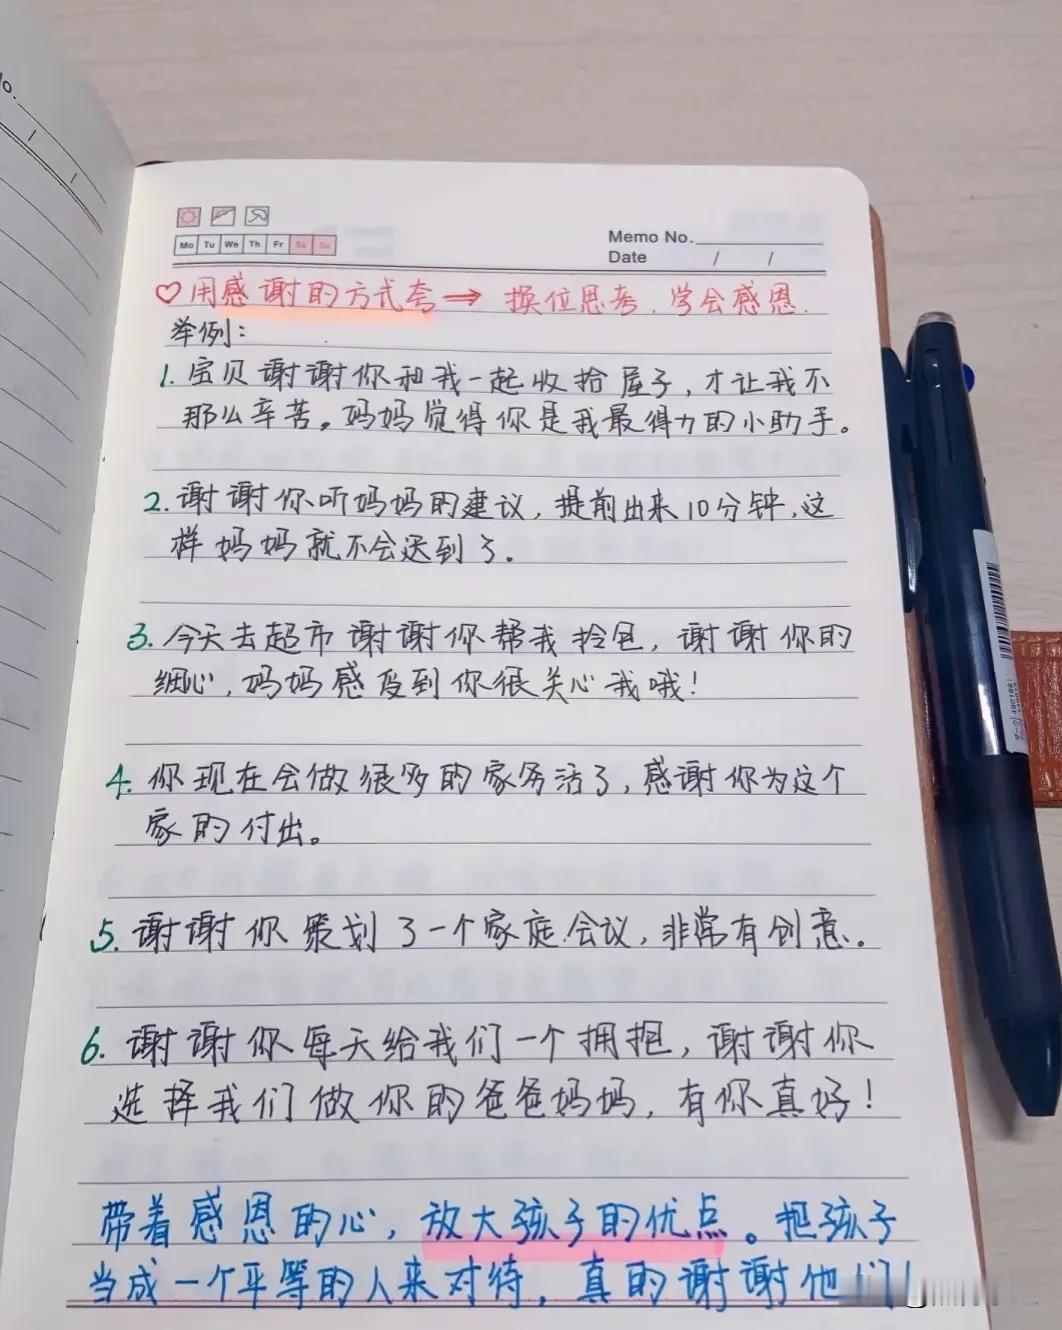 o.
Mo Tu We Th Fr Sa Su
Memo No.
Date / /
♡用感谢的方式夸⇒换位思考.学会感恩.
举例:
1.宝贝谢谢你和我一起收拾屋子,才让我不
那么辛苦。妈妈觉得你是我最得力的小助手。
2.谢谢你听妈妈的建议,提前出来10分钟,这
样妈妈就不会迟到了.
3.今天去超市谢谢你帮我拎包,谢谢你的
细心,妈妈感受到你很关心我哦!
4.你现在会做很多的家务活了,感谢你为这个
家的付出。
5.谢谢你策划了一个家庭会议,非常有创意。
6.谢谢你每天给我们一个拥抱,谢谢你
选择我们做你的爸爸妈妈,有你真好!
带着感恩的心,放大孩子的优点。把孩子
当成一个平等的人来对待,真的谢谢他们!